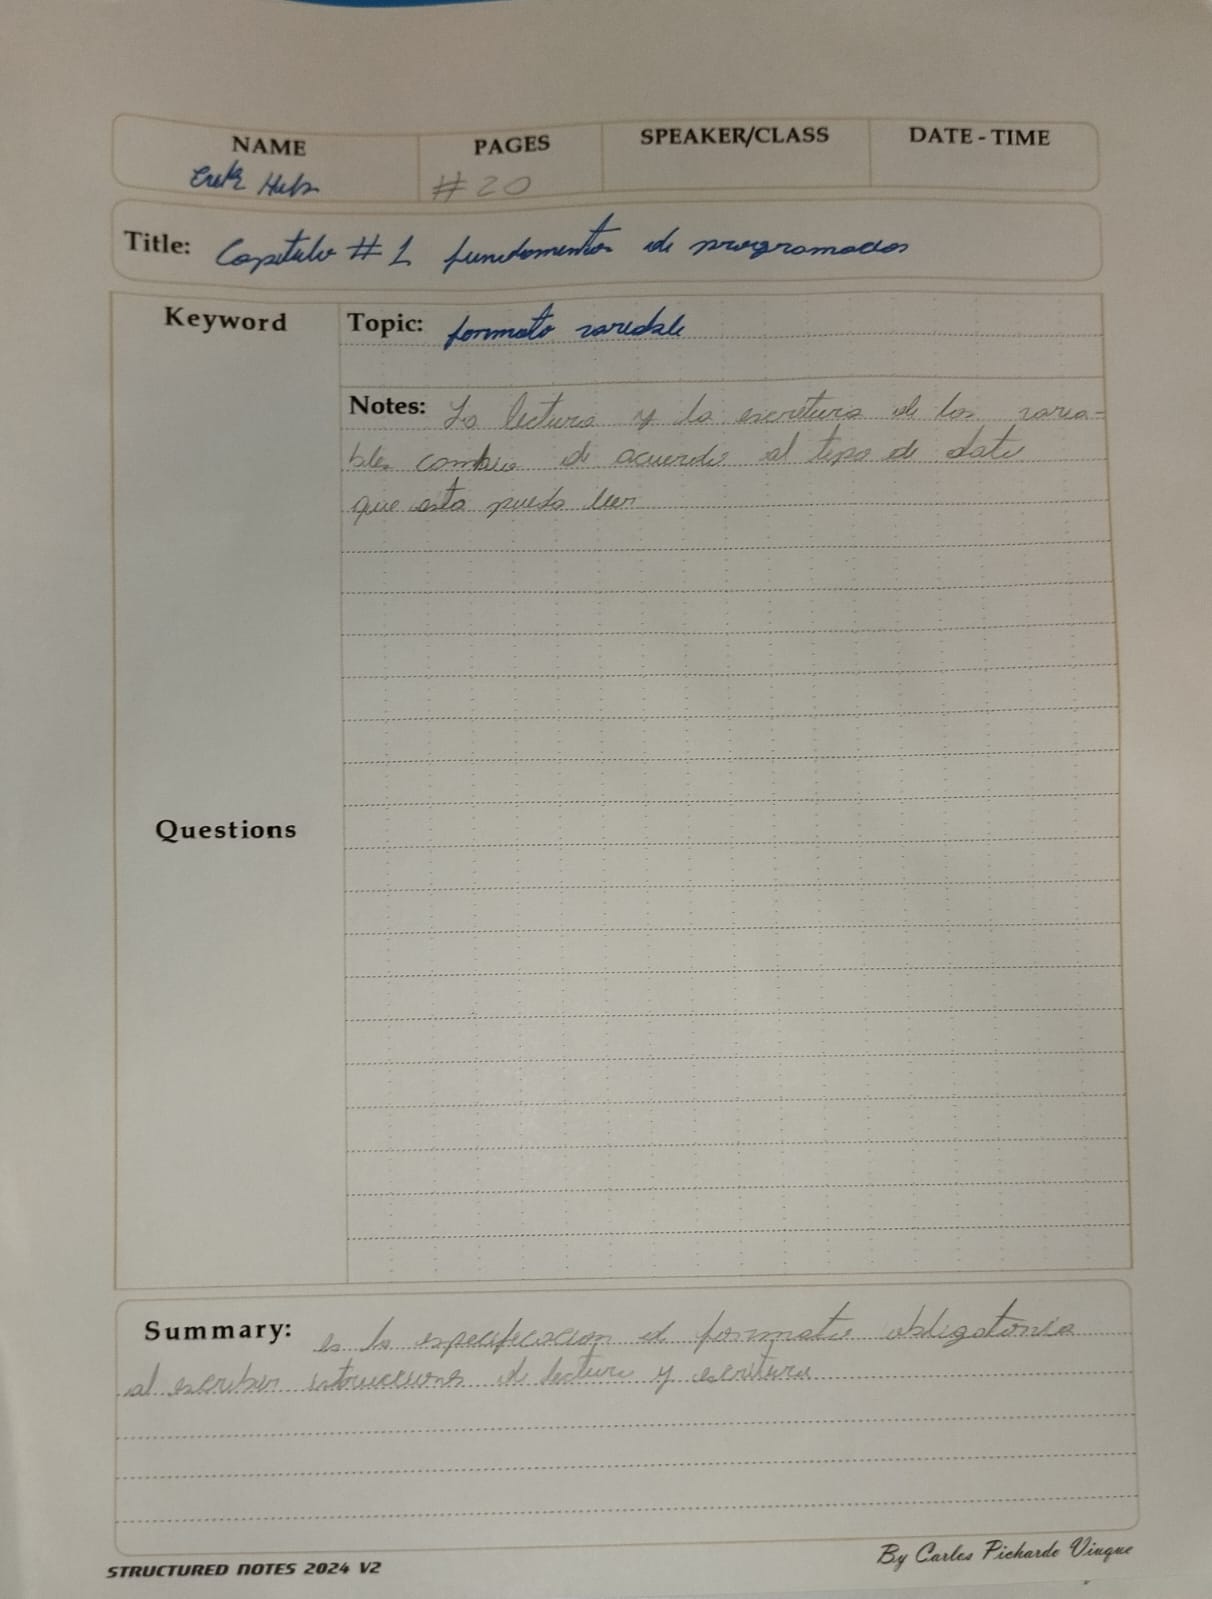 NAME PAGES SPEAKER/CLASS DATE - TIME
#20
Title: Capitulo #1 fundamentos de programacion
Keyword
Topic: formato variable
Notes: La lectura y la escritura de las varia-
bles cambia de acuerdo al tipo de dato
que esta pueda leer
Questions
Summary: es la especificacion de formato obligatoria
al escriben intrucciones de lectura y escritura
STRUCTURED NOTES 2024 V2
By Carlos Pichardo Viuque